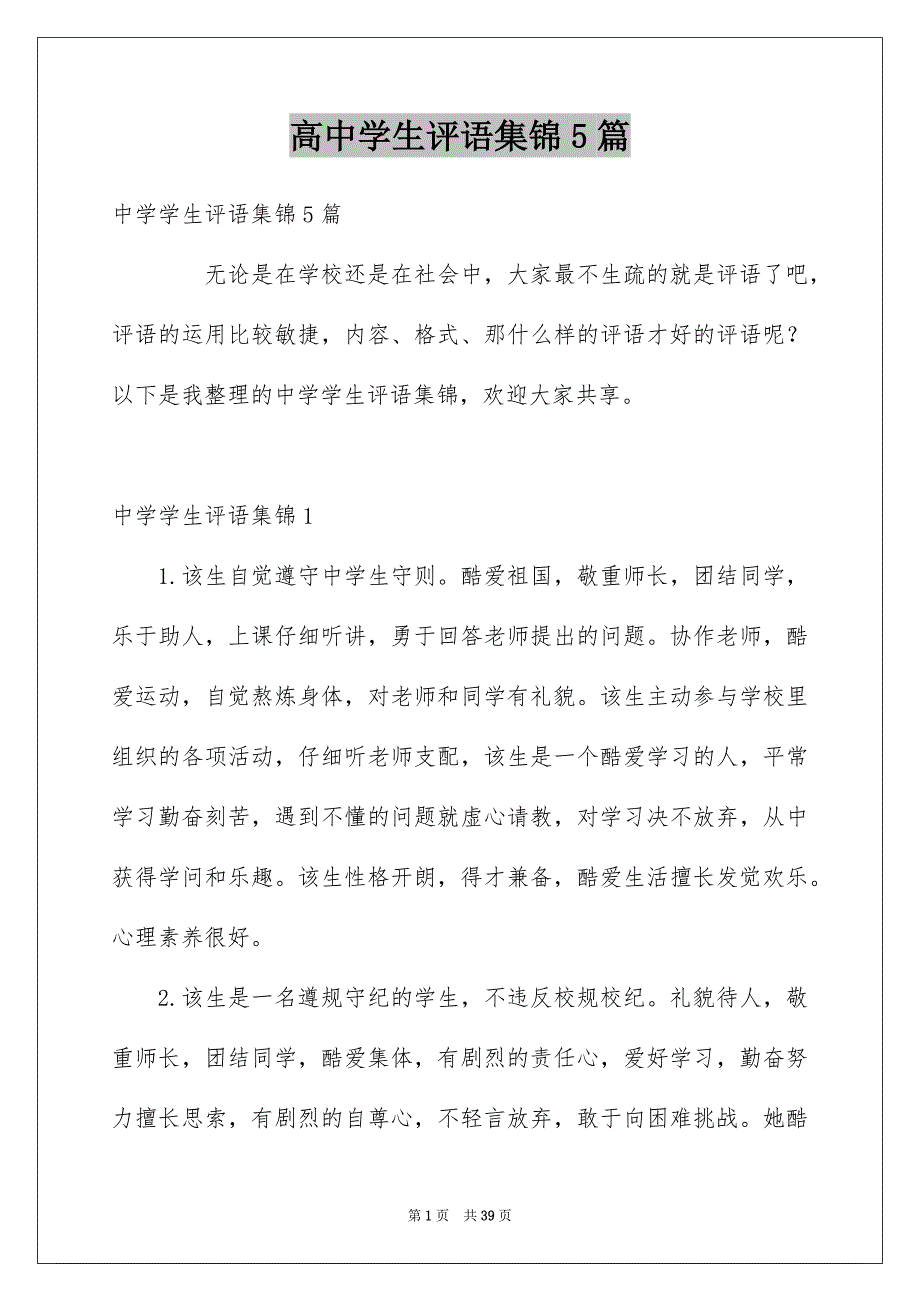 高中学生评语集锦5篇
中学学生评语集锦5篇
无论是在学校还是在社会中，大家最不生疏的就是评语了吧，
评语的运用比较敏捷，内容、格式、那什么样的评语才好的评语呢？
以下是我整理的中学学生评语集锦，欢迎大家共享。
中学学生评语集锦1
1.该生自觉遵守中学生守则。酷爱祖国，敬重师长，团结同学，
乐于助人，上课仔细听讲，勇于回答老师提出的问题。协作老师，酷
爱运动，自觉熬炼身体，对老师和同学有礼貌。该生主动参与学校里
组织的各项活动，仔细听老师支配，该生是一个酷爱学习的人，平常
学习勤奋刻苦，遇到不懂的问题就虚心请教，对学习决不放弃，从中
获得学问和乐趣。该生性格开朗，得才兼备，酷爱生活擅长发觉欢乐。
心理素养很好。
2.该生是一名遵规守纪的学生，不违反校规校纪。礼貌待人，敬
重师长，团结同学，酷爱集体，有剧烈的责任心，爱好学习，勤奋努
力擅长思索，有剧烈的自尊心，不轻言放弃，敢于向困难挑战。她酷
第1页 共39页